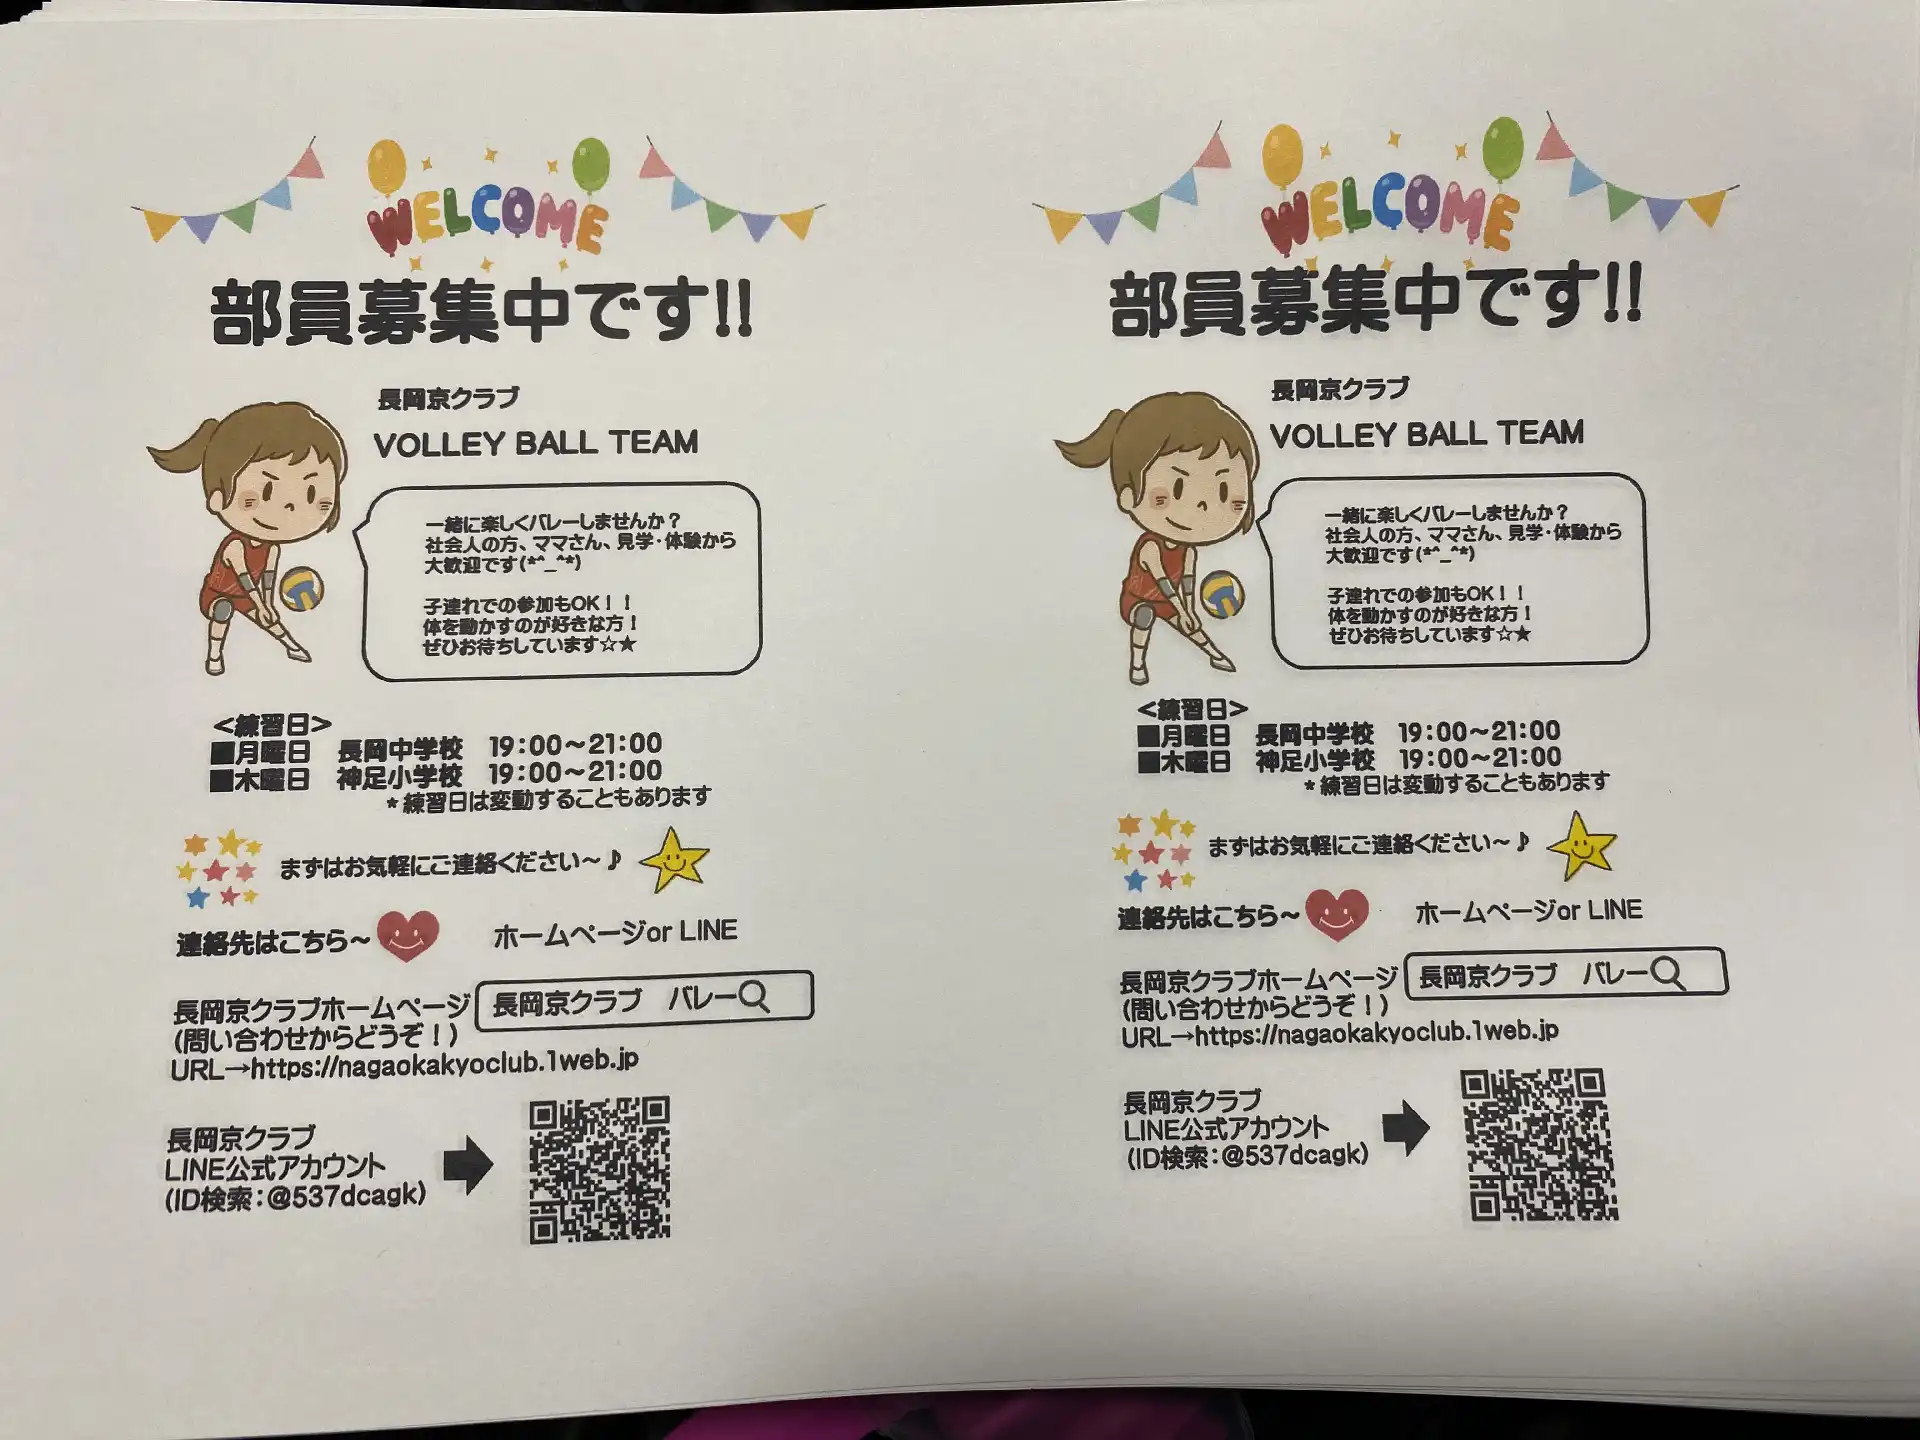 WELCOME
部員募集中です!!
長岡京クラブ
VOLLEY BALL TEAM
一緒に楽しくバレーしませんか？
社会人の方、ママさん、見学・体験から
大歓迎です(*^_^*)
子連れでの参加もOK！！
体を動かすのが好きな方！
ぜひお待ちしています☆★
<練習日>
■月曜日　長岡中学校　19:00～21:00
■木曜日　神足小学校　19:00～21:00
*練習日は変動することもあります
まずはお気軽にご連絡ください～♪
連絡先はこちら～　ホームページor LINE
長岡京クラブホームページ　長岡京クラブ　バレー
(問い合わせからどうぞ！)
URL→https://nagaokakyoclub.1web.jp
長岡京クラブ
LINE公式アカウント
(ID検索：@537dcagk)
WELCOME
部員募集中です!!
長岡京クラブ
VOLLEY BALL TEAM
一緒に楽しくバレーしませんか？
社会人の方、ママさん、見学・体験から
大歓迎です(*^_^*)
子連れでの参加もOK！！
体を動かすのが好きな方！
ぜひお待ちしています☆★
<練習日>
■月曜日　長岡中学校　19:00～21:00
■木曜日　神足小学校　19:00～21:00
*練習日は変動することもあります
まずはお気軽にご連絡ください～♪
連絡先はこちら～　ホームページor LINE
長岡京クラブホームページ　長岡京クラブ　バレー
(問い合わせからどうぞ！)
URL→https://nagaokakyoclub.1web.jp
長岡京クラブ
LINE公式アカウント
(ID検索：@537dcagk)